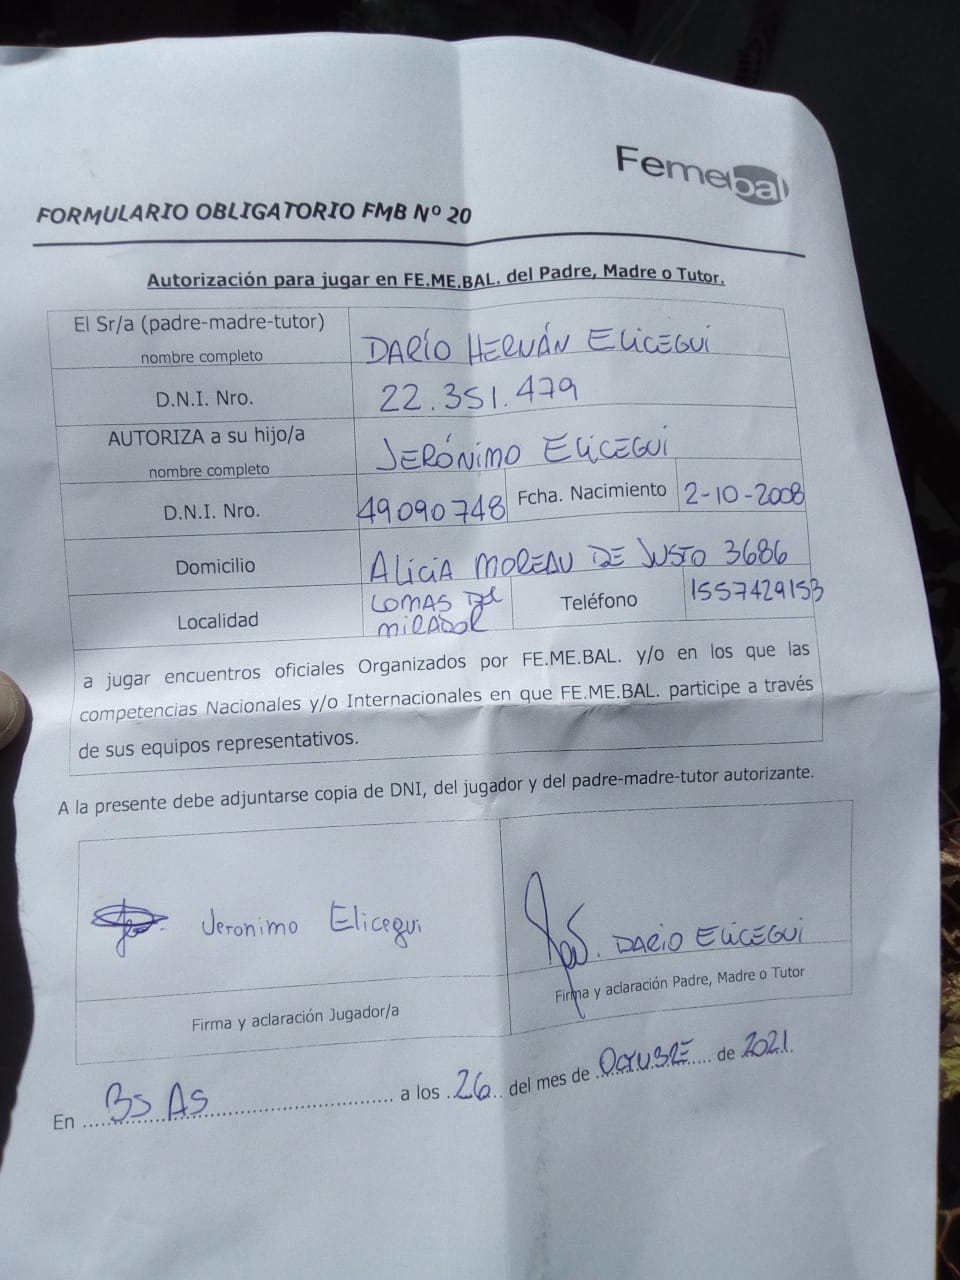 Femebal
FORMULARIO OBLIGATORIO FMB Nº 20
Autorización para jugar en FE.ME.BAL. del Padre, Madre o Tutor.
El Sr/a (padre-madre-tutor)
nombre completo
DARÍO HERNÁN ELICEGUI
D.N.I. Nro.
22.351.479
AUTORIZA a su hijo/a
nombre completo
JERÓNIMO ELICEGUI
D.N.I. Nro.
49090748
Fcha. Nacimiento
2-10-2008
Domicilio
ALICIA MOREAU DE JUSTO 3686
Localidad
LOMAS DEL
MIRADOR
Teléfono
1557429153
a jugar encuentros oficiales Organizados por FE.ME.BAL. y/o en los que las
competencias Nacionales y/o Internacionales en que FE.ME.BAL. participe a través
de sus equipos representativos.
A la presente debe adjuntarse copia de DNI, del jugador y del padre-madre-tutor autorizante.
Jeronimo Elicegui
DARIO ELICEGUI
Firma y aclaración Jugador/a
Firma y aclaración Padre, Madre o Tutor
En BS AS a los 26 del mes de OCTUBRE de 2021